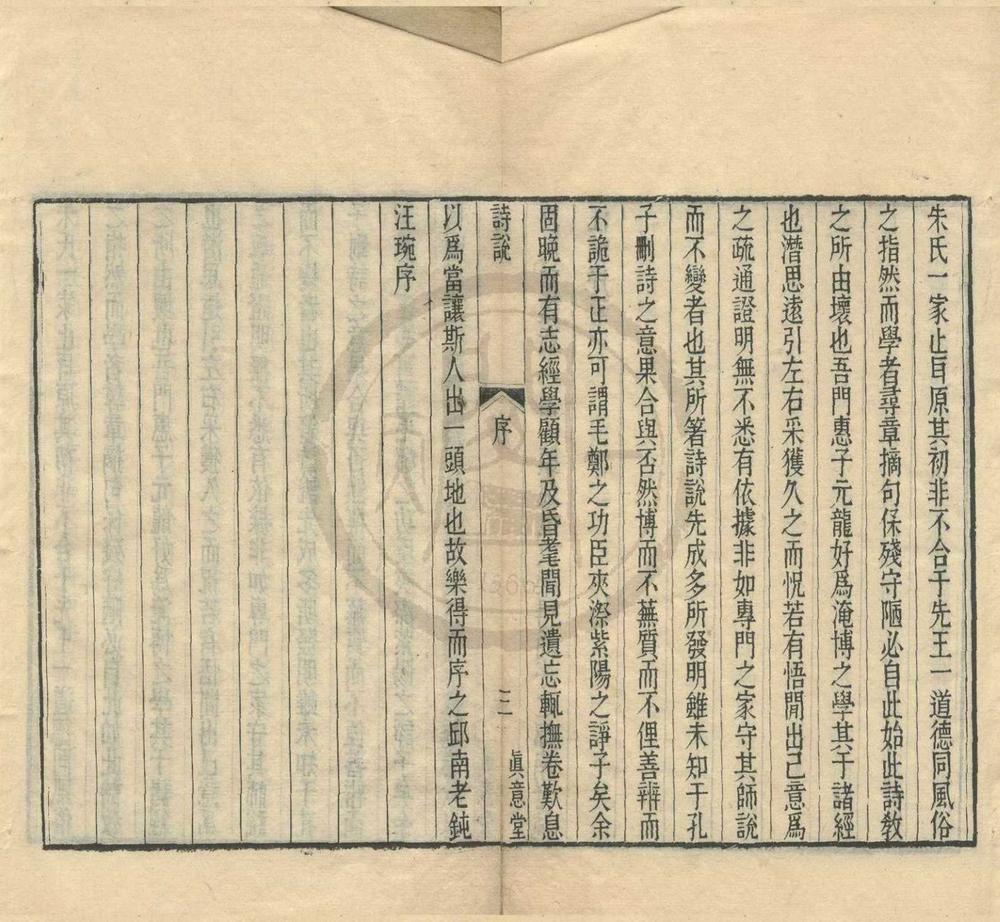 朱氏一家止目原其初非不合于先王一道德同風俗
之指然而學者尋章摘句保殘守陋必自此始此詩教
之所由壞也吾門惠子元龍好爲淹博之學其于諸經
也潛思遠引左右采獲久之而怳若有悟閒出己意爲
之疏通證明無不悉有依據非如專門之家守其師說
而不變者也其所箸詩說先成多所發明雖未知于孔
子刪詩之意果合與否然博而不蕪質而不俚善辨而
不詭于正亦可謂毛鄭之功臣夾漈紫陽之諍子矣余
固晚而有志經學顧年及昏耄聞見遺忘輒撫卷歎息
詩說
序
二
眞意堂
以爲當讓斯人出一頭地也故樂得而序之邱南老鈍
汪琬序